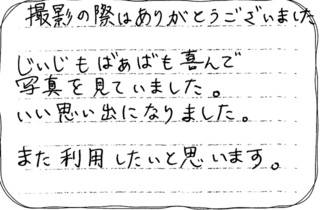 撮影の際はありがとうございました
じぃじもばぁばも喜んで
写真を見ていました。
いい思い出になりました。
また利用したいと思います。